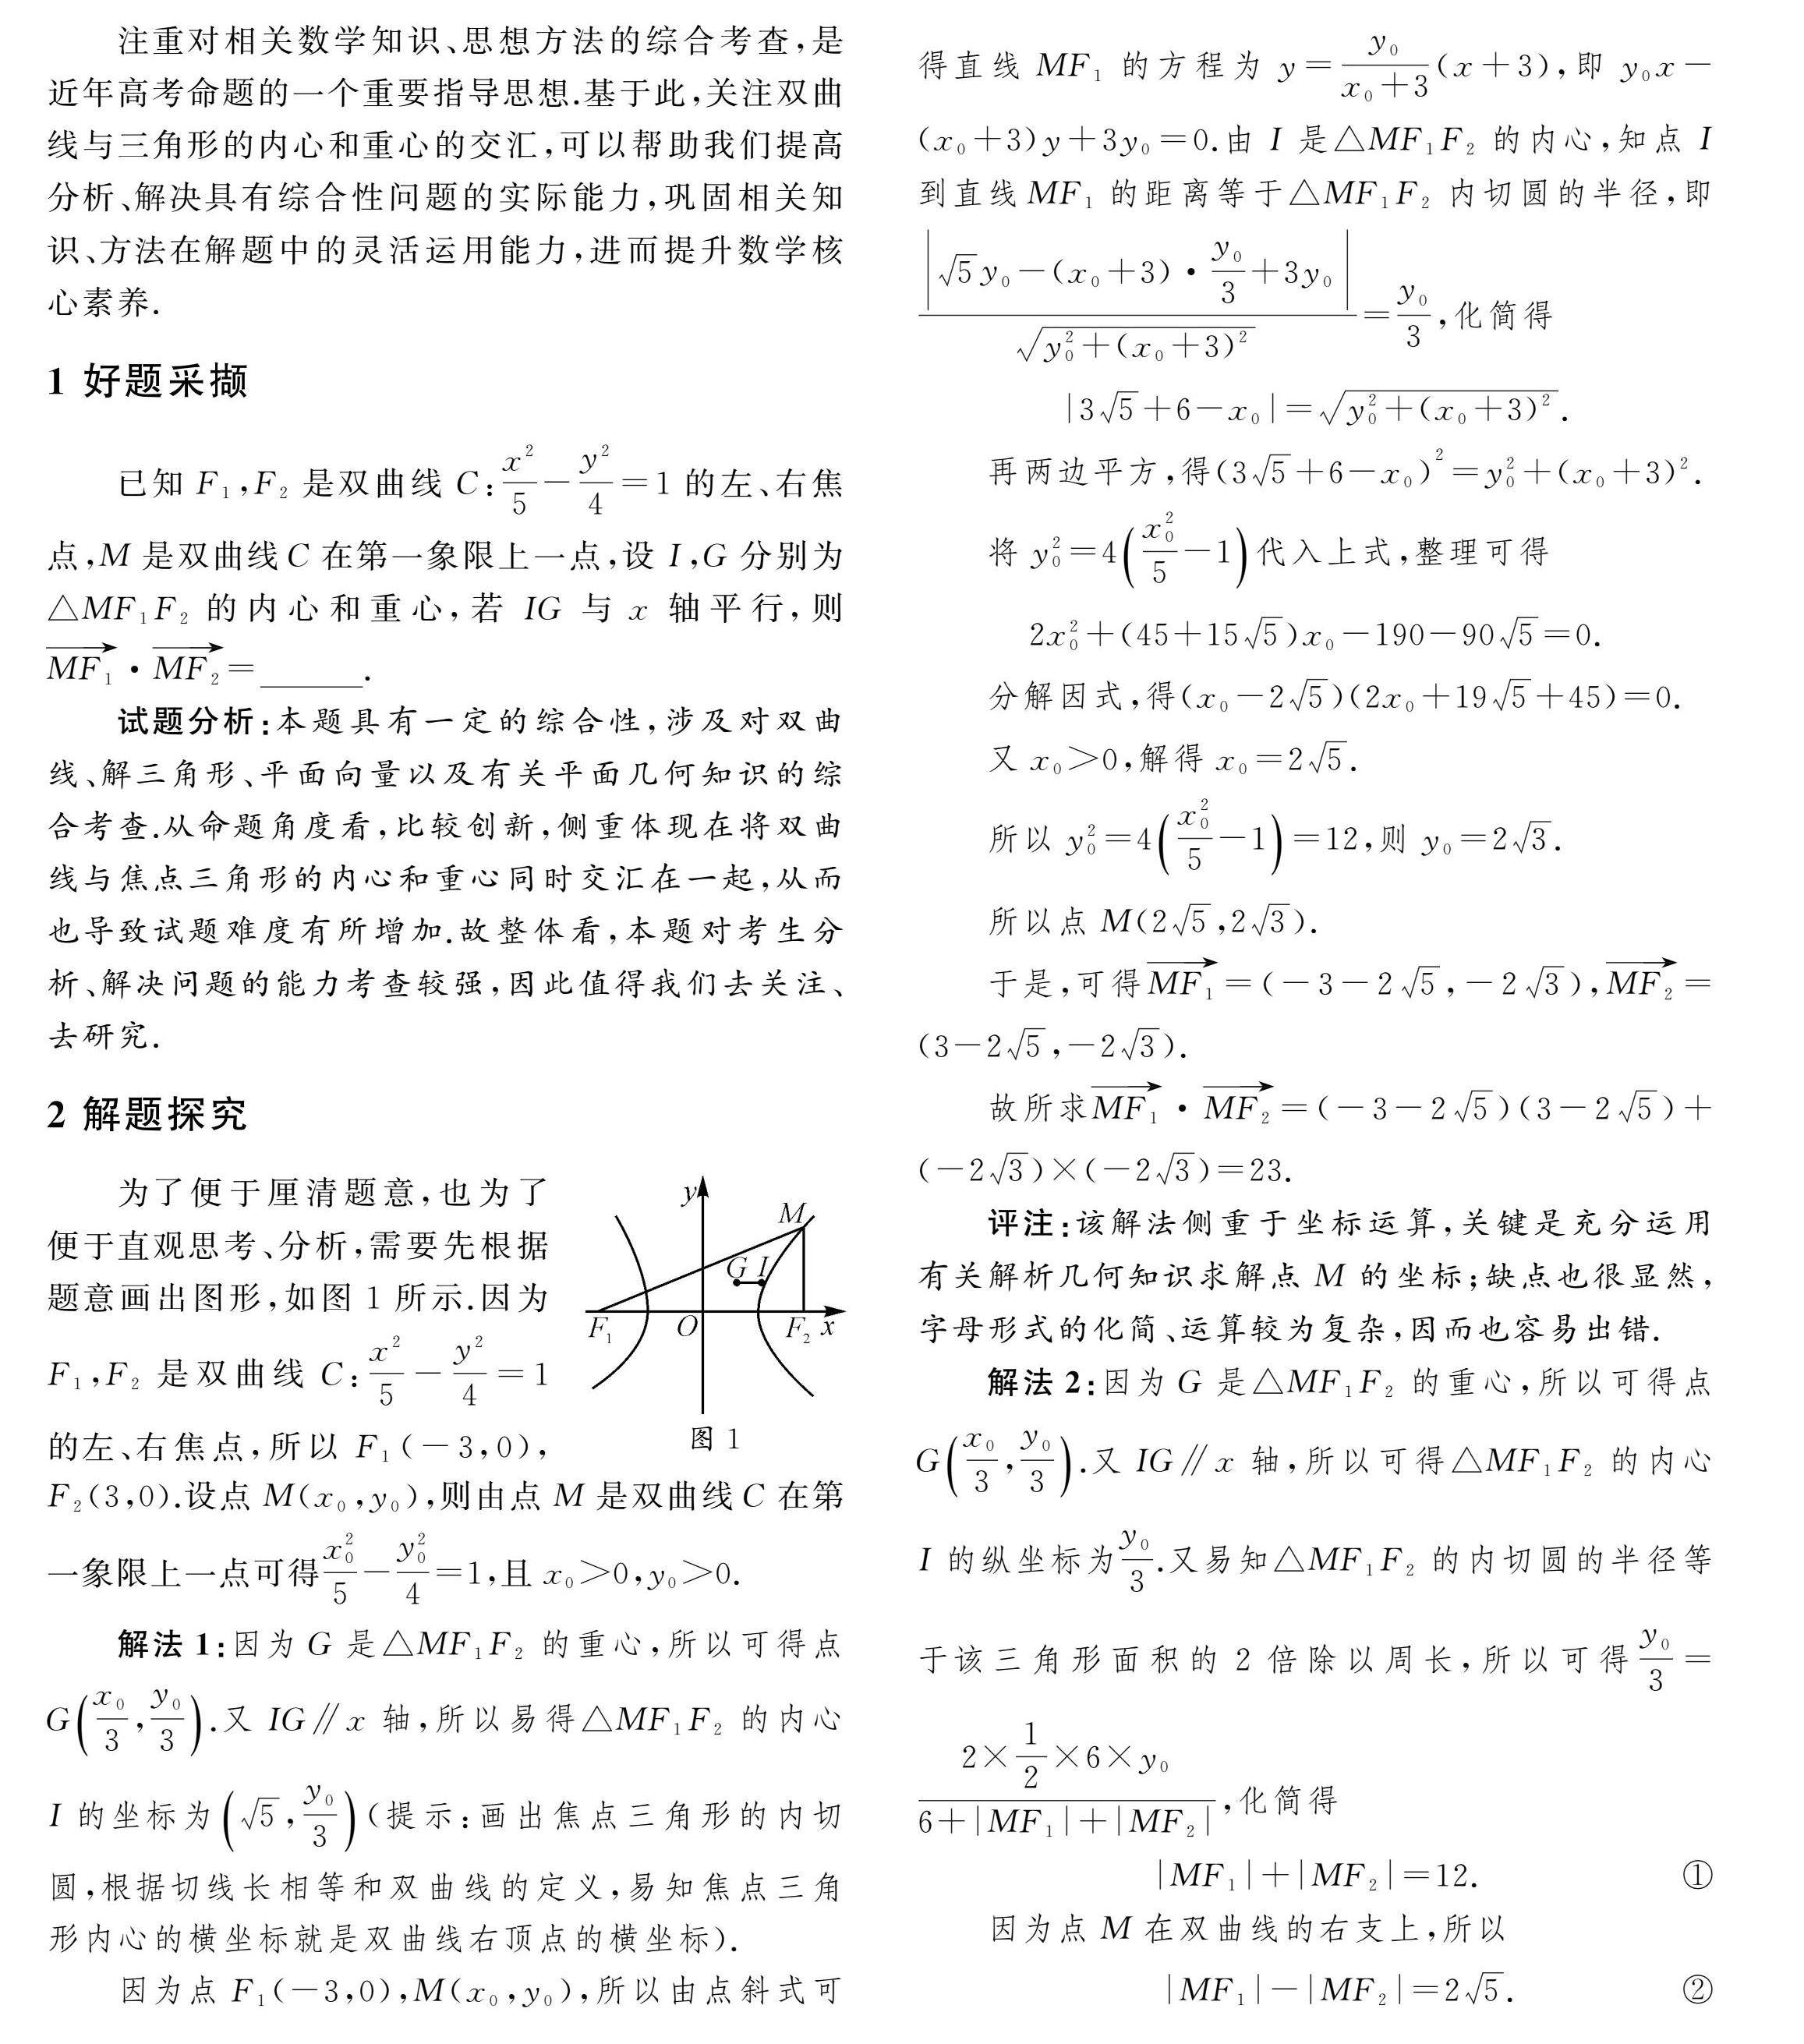 注重对相关数学知识、思想方法的综合考查,是
近年高考命题的一个重要指导思想.基于此,关注双曲
线与三角形的内心和重心的交汇,可以帮助我们提高
分析、解决具有综合性问题的实际能力,巩固相关知
识、方法在解题中的灵活运用能力,进而提升数学核
心素养.
1 好题采撷
已知 F₁,F₂ 是双曲线 C:x²/5−y²/4=1 的左、右焦
点,M 是双曲线C 在第一象限上一点,设 I,G 分别为
△MF₁F₂ 的内心和重心,若 IG 与 x 轴平行,则
$\overrightarrow{MF_1}$·$\overrightarrow{MF_2}$=______.
试题分析:本题具有一定的综合性,涉及对双曲
线、解三角形、平面向量以及有关平面几何知识的综
合考查.从命题角度看,比较创新,侧重体现在将双曲
线与焦点三角形的内心和重心同时交汇在一起,从而
也导致试题难度有所增加.故整体看,本题对考生分
析、解决问题的能力考查较强,因此值得我们去关注、
去研究.
2 解题探究
为了便于厘清题意,也为了
便于直观思考、分析,需要先根据
题意画出图形,如图 1 所示.因为
F₁,F₂ 是双曲线 C:x²/5−y²/4=1
的左、右焦点,所以 F₁(−3,0),
y
M
G I
F₁ O F₂ x
图 1
F₂(3,0).设点 M(x₀,y₀),则由点 M 是双曲线C 在第
一象限上一点可得x₀²/5−y₀²/4=1,且 x₀>0,y₀>0.
解法 1:因为 G 是△MF₁F₂ 的重心,所以可得点
G(x₀/3,y₀/3).又 IG∥x 轴,所以易得△MF₁F₂ 的内心
I 的坐标为(√5,y₀/3)(提示:画出焦点三角形的内切
圆,根据切线长相等和双曲线的定义,易知焦点三角
形内心的横坐标就是双曲线右顶点的横坐标).
因为点 F₁(−3,0),M(x₀,y₀),所以由点斜式可
得直线 MF₁ 的方程为 y=y₀/(x₀+3)(x+3),即 y₀x−
(x₀+3)y+3y₀=0.由 I 是△MF₁F₂ 的内心,知点 I
到直线MF₁ 的距离等于△MF₁F₂ 内切圆的半径,即
|√5y₀−(x₀+3)·y₀/3+3y₀|/√(y₀²+(x₀+3)²)=y₀/3,化简得
|3√5+6−x₀|=√(y₀²+(x₀+3)²).
再两边平方,得(3√5+6−x₀)²=y₀²+(x₀+3)².
将 y₀²=4(x₀²/5−1)代入上式,整理可得
2x₀²+(45+15√5)x₀−190−90√5=0.
分解因式,得(x₀−2√5)(2x₀+19√5+45)=0.
又 x₀>0,解得 x₀=2√5.
所以 y₀²=4(x₀²/5−1)=12,则 y₀=2√3.
所以点 M(2√5,2√3).
于是,可得$\overrightarrow{MF_1}$=(−3−2√5,−2√3),$\overrightarrow{MF_2}$=
(3−2√5,−2√3).
故所求$\overrightarrow{MF_1}$·$\overrightarrow{MF_2}$=(−3−2√5)(3−2√5)+
(−2√3)×(−2√3)=23.
评注:该解法侧重于坐标运算,关键是充分运用
有关解析几何知识求解点 M 的坐标;缺点也很显然,
字母形式的化简、运算较为复杂,因而也容易出错.
解法 2:因为 G 是△MF₁F₂ 的重心,所以可得点
G(x₀/3,y₀/3).又 IG∥x 轴,所以可得△MF₁F₂ 的内心
I 的纵坐标为y₀/3.又易知△MF₁F₂ 的内切圆的半径等
于该三角形面积的 2 倍除以周长,所以可得y₀/3=
(2×1/2×6×y₀)/(6+|MF₁|+|MF₂|),化简得
|MF₁|+|MF₂|=12. ①
因为点 M 在双曲线的右支上,所以
|MF₁|−|MF₂|=2√5. ②